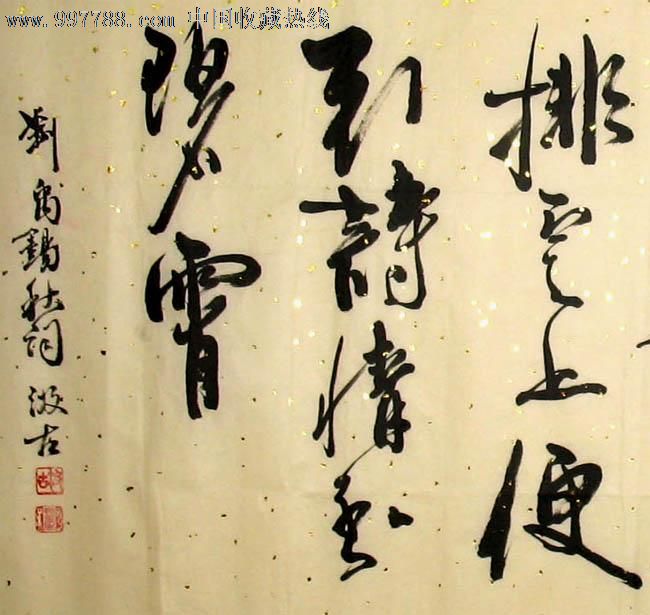 www.997788.com 中国收藏热线
排云上便
引詩情到
碧霄
劉禹錫秋詞 古